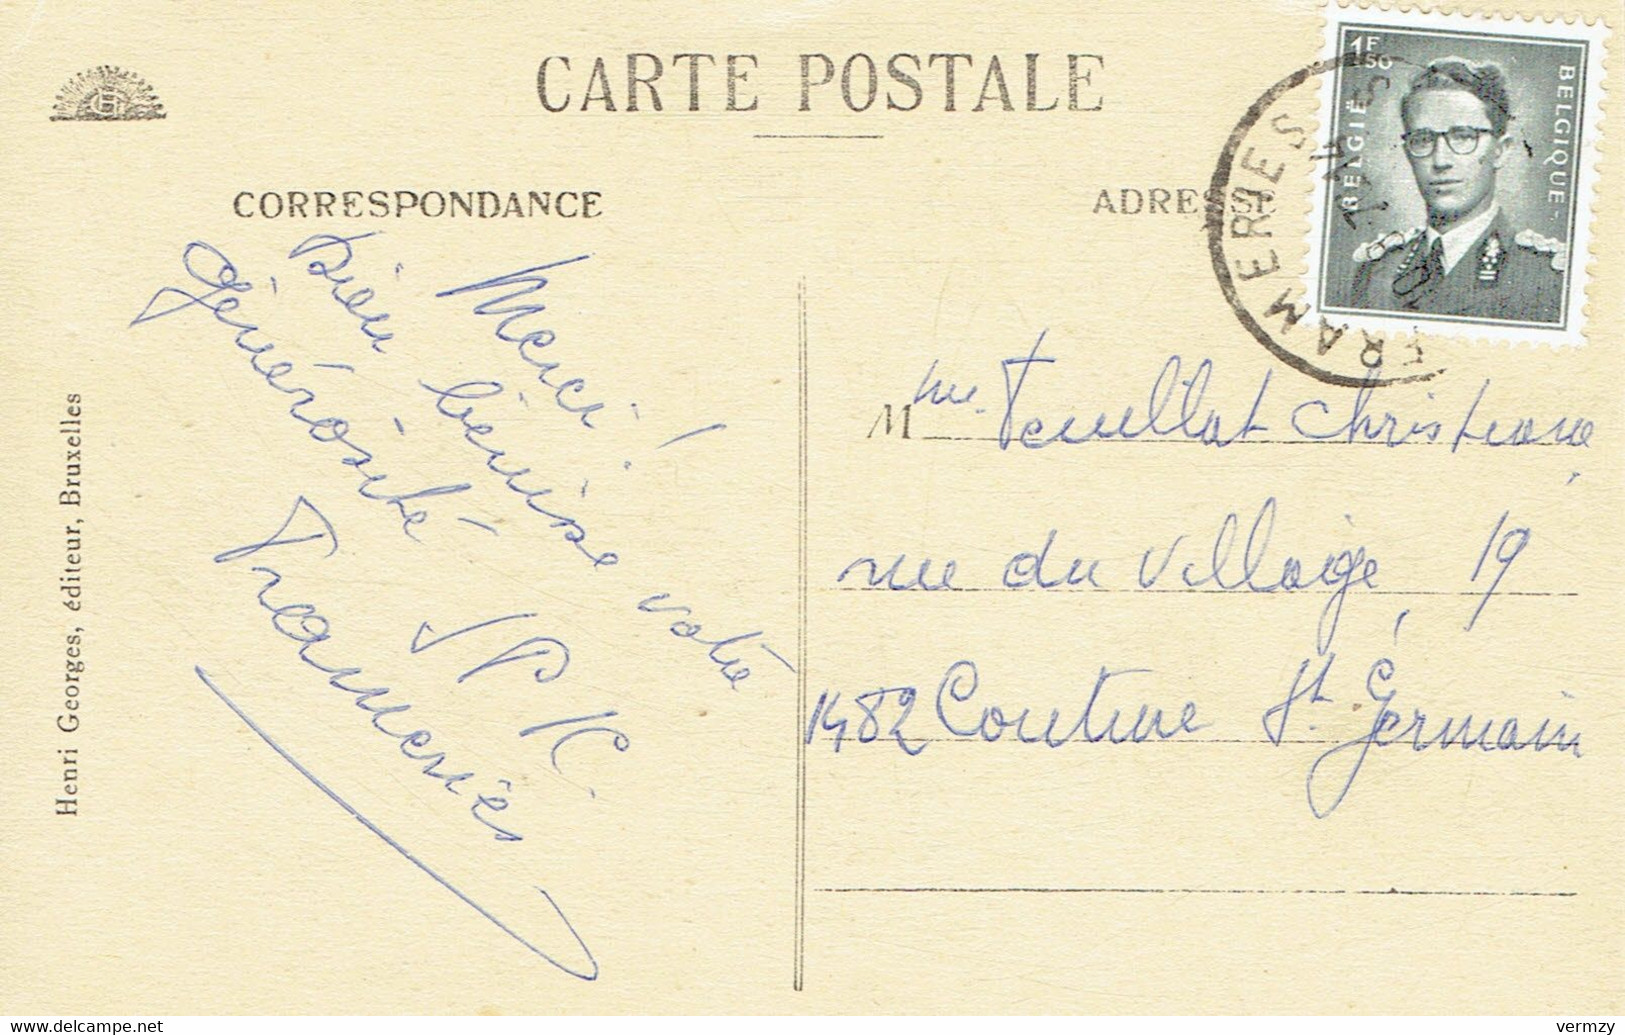 CARTE POSTALE
CORRESPONDANCE
ADRESSE
1F50
BELGIË
BELGIQUE
FRAMERIES
Merci!
Dieu bénisse votre
générosité
J P K.
Frameries
Mme. Christiane
rue du Village, 19
1482 Couture St Germain
Henri Georges, éditeur, Bruxelles
www.vermzy - delcampe.net